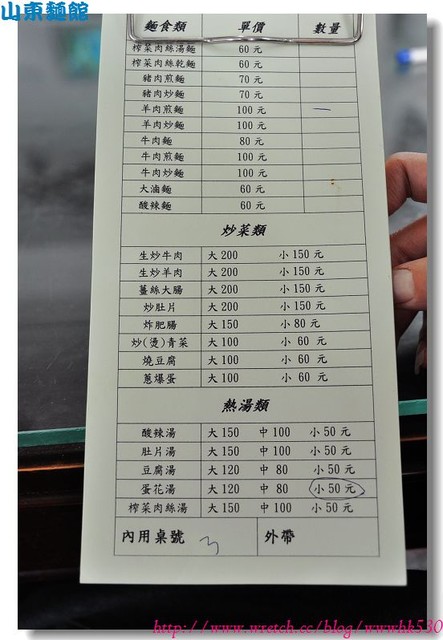 山東麵館
麵食類 單價 數量
榨菜肉絲湯麵 60元
榨菜肉絲乾麵 60元
豬肉煎麵 70元
豬肉炒麵 70元
羊肉煎麵 100元
羊肉炒麵 100元
牛肉麵 80元
牛肉煎麵 100元
牛肉炒麵 100元
大滷麵 60元
酸辣麵 60元
炒菜類
生炒牛肉 大200 小150元
生炒羊肉 大200 小150元
薑絲大腸 大200 小150元
炒肚片 大200 小150元
炸肥腸 大150 小80元
炒(燙)青菜 大100 小60元
燒豆腐 大100 小60元
蔥爆蛋 大100 小60元
熱湯類
酸辣湯 大150 中100 小50元
肚片湯 大150 中100 小50元
豆腐湯 大120 中80 小50元
蛋花湯 大120 中80 小50元
榨菜肉絲湯 大150 中100 小50元
內用桌號 3 外帶
http://www.wretch.cc/blog/wwwhk530